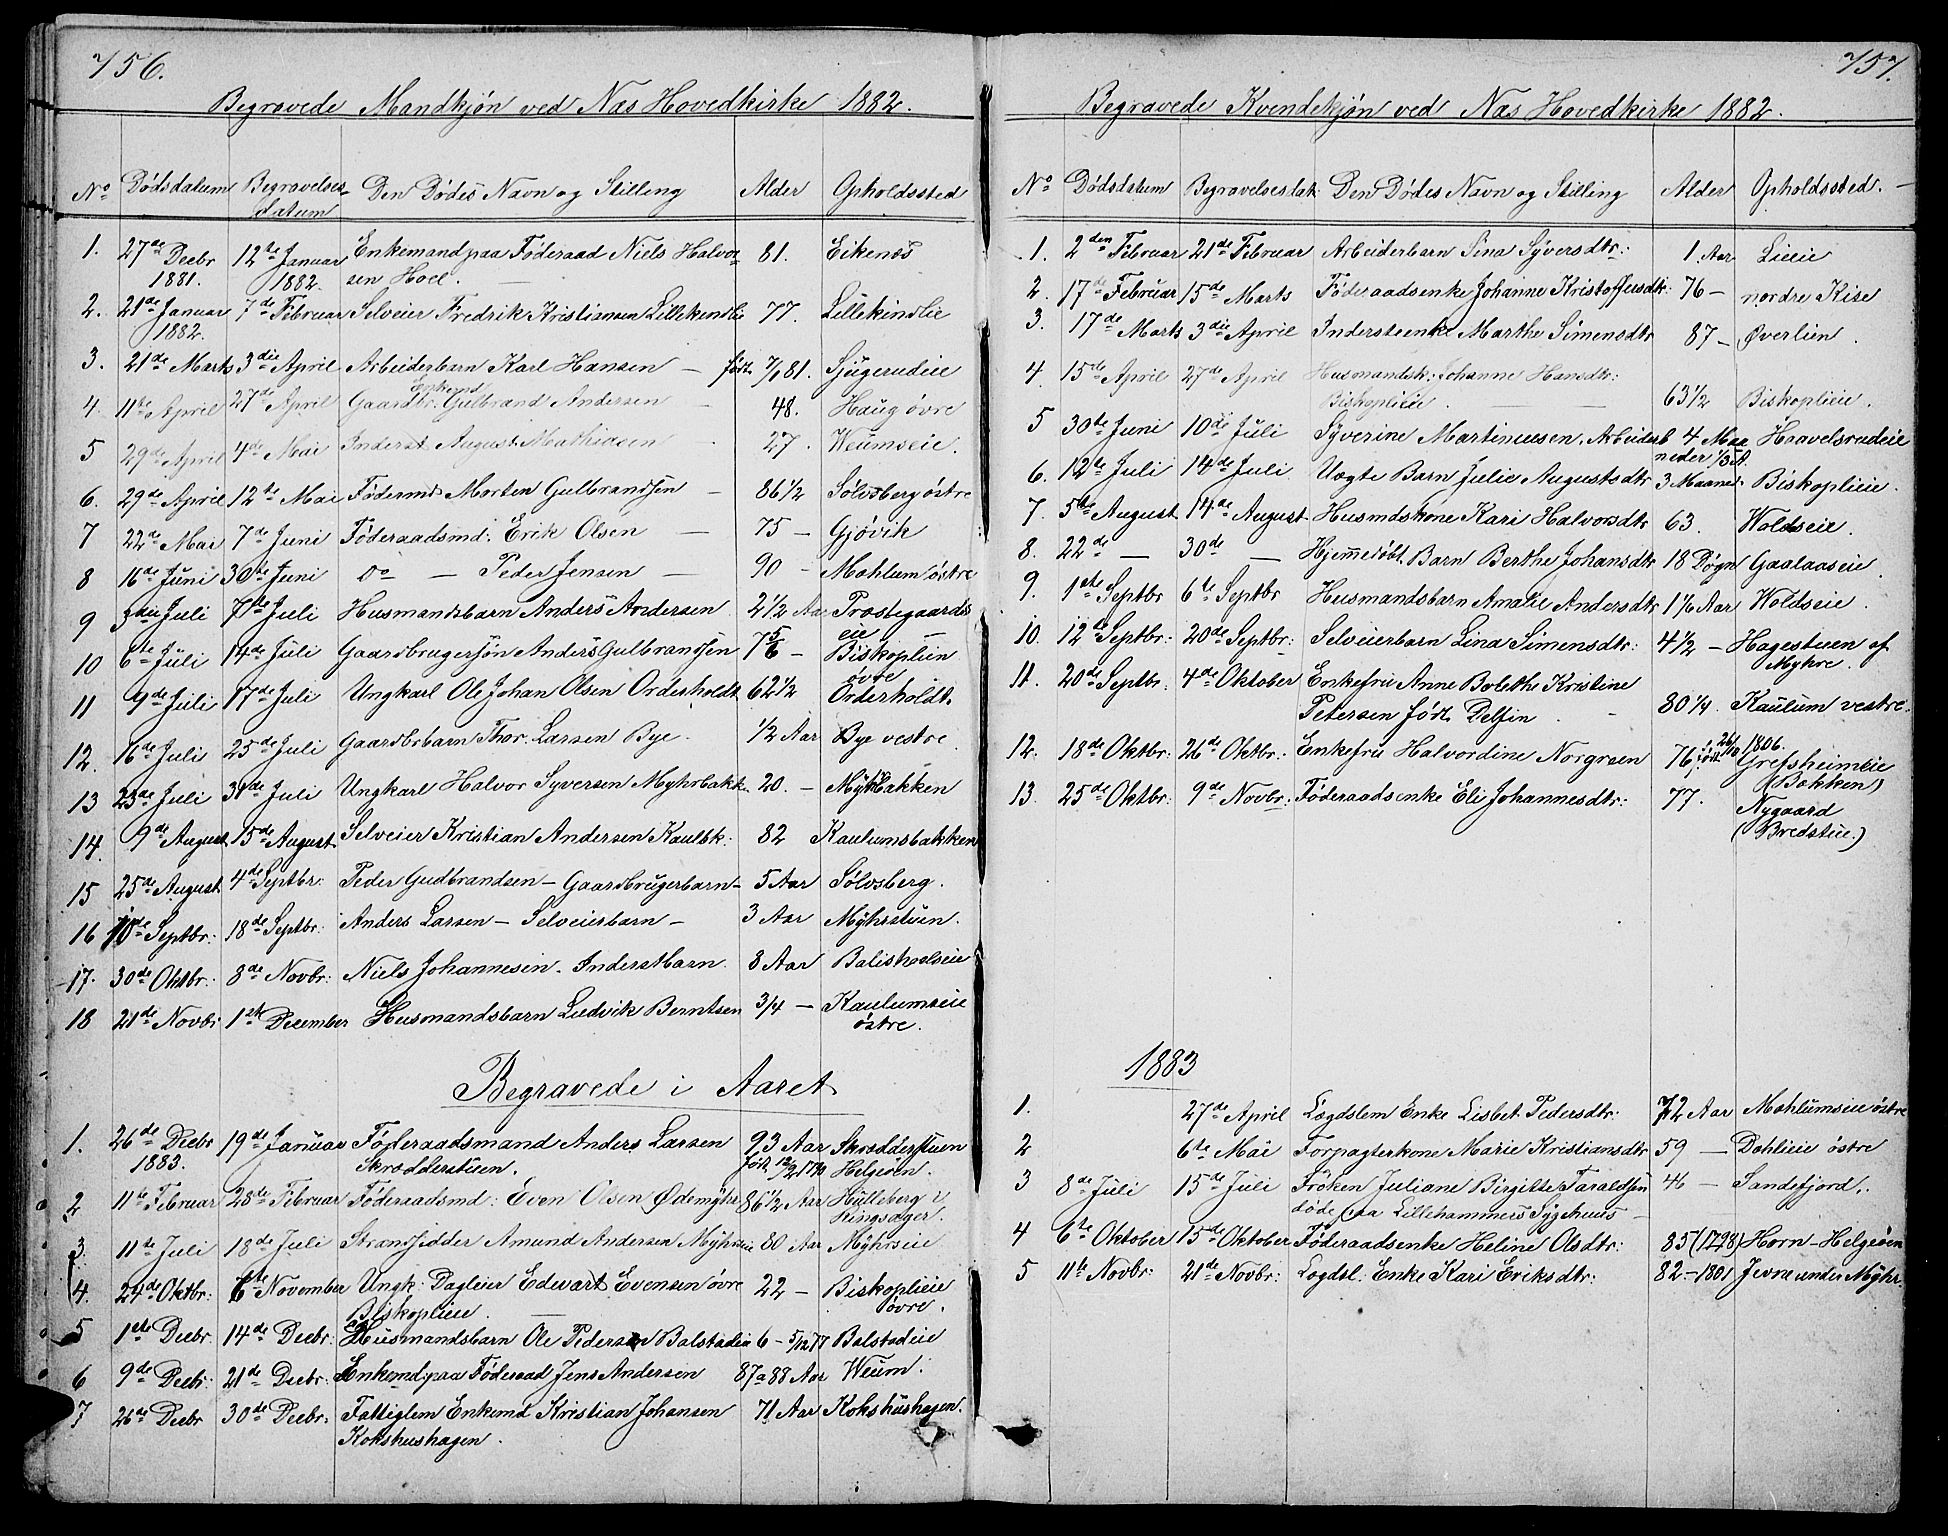 756.
Begravede Mandkjøn ved Næs Hovedkirke 1882.
No Dødsdatum Begravelses- Den Dødes Navn og Stilling Alder Opholdssted
datum
1. 27de Decbr 12te Januar Enkemand paa Føderaad Niels Halvor= 81. Eikenes
1881. 1882. sen Hoel.
2. 21de Januar 7de Februar Selveier Fredrik Kristiansen Lillekindlie 77. Lillekindlie
1882.
3. 21de Marts 3die April Arbeiderbarn Karl Hansen — født 7/1 81. Sjugerudeie
Enkemd
4. 11te April 27de April Gaardbr. Gulbrand Andersen 48. Haug øvre
5 29de April 4de Mai Inderst August Mathiasen 27. Weumseie.
6. 29de April 12te Mai Fødermd Morten Gulbrandsen — 86 1/2 Sølvsberg østre
7 22de Mai 7de Juni Føderaadsmd: Erik Olsen — 75 — Gjøvik
8 16de Juni 30te Juni Do — Peder Jensen — 90 — Mæhlum østre
9 3die Juli 7de Juli Husmandsbarn Anders Andersen 2 1/2 Aar Præstegaards
eie
10 6te Juli 14de Juli Gaardbrugersøn Anders Gulbrandsen 7 5/6 — Biskoplien
øvre
11 9de Juli 17de Juli Ungkarl Ole Johan Olsen Orderholdt 62 1/2 Orderholdt.
12. 16de Juli 25de Juli Gaardbrbarn Thor. Larsen Bye. 1/2 Aar Bye vestre.
13 23de Juli 31de Juli Ungkarl Halvor Syversen Myhrbakk. 20. — Myhrbakken
14. 9de August 15de August Selveier Kristian Andersen Kaulbk: 82 Kaulumsbakken
15 25de August 4de Septbr: Peder Gudbrandsen — Gaardbrugerbarn — 5 Aar Sølvsberg.
16 10de Septbr: 18de Septbr: Anders Larsen — Selveierbarn — 3 Aar Myhrstuen.
17. 30de Oktbr: 8de Novbr: Niels Johannesen. Inderstbarn. 8 Aar Balishoelseie
18 21de Novbr 1ste December Husmandsbarn Ludvik Berntsen 3/4 — Kaulumseie
østre.
Begravede i Aaret
1. 26de Decbr 19de Januar Føderaadsmand Anders Larsen 93 Aar Skrædderstuen
1883. Skrædderstuen. født 12/2 1790 Helgøen.
2 11te Februar 28de Februar Føderaadsmd: Even Olsen Ødemyhr 86 1/2 Aar Hulleberg i
Ringsager.
3. 11te Juli 18de Juli Strandsidder Amund Andersen Myhrseie 80 Aar Myhrseie
4. 24de Oktbr: 6te November Ungk: Dagleier Edevart Evensen øvre 22 — Biskoplieie
Biskoplieie øvre.
5 1ste Decbr 14de Decbr: Husmandsbarn Ole Pedersen Balstadeie 6 — 5/12 77 Balstadeie
6 9de Decbr: 21de Decbr: Enkemd paa Føderaad Jens Andersen 87 a 88 Aar Weum.
7 26de Decbr 30de Decbr: Fattiglem Enkemd Kristian Johansen 71 Aar Kokshushagen.
Kokshushagen.
757.
Begravede Kvendekjøn ved Næs Hovedkirke 1882.
No Dødsdatum Begravelsesdat: Den Dødes Navn og Stilling Alder Opholdssted.
1. 2den Februar 21de Februar Arbeiderbarn Sina Syversdtr: 1. Aar Lieie
2. 17de Februar 15de Marts Føderaadsenke Johanne Kristoffersdtr: 76 — nordre Kise
3. 17de Marts 3die April Inderstenke Marthe Simensdtr 87 — Øverlien.
4. 15de April 27de April Husmandsk: Johanne Hansdtr:
Biskoplieie. 63 1/2 Biskoplieie.
5 30te Juni 10de Juli Syverine Martinusen. Arbeiderb 4 Maa Haavelsrudeie
neder
6. 12te Juli 14de Juli Uægte Barn Julie Augustsdtr 3 Maaned. Biskoplieie.
7. 5te August 14de August Husmdskone Kari Halvorsdtr 63. Woldseie.
8. 22de — 30de — Hjemmedøbt Barn Berthe Johansdtr 18 Døgn Gaalaaseie.
9. 1ste Septbr 6te Septbr Husmandsbarn Amalie Andersdtr 1 1/6 Aar Woldseie.
10. 12te Septbr: 20de Septbr: Selveierbarn Lina Simensdtr: 4 1/2 — Hagestuen af
Myhre.
11. 20de Septbr: 4de Oktober Enkefru Anne Bolethe Kristine
Petersen født Delfin. 80 1/4. Kaulum vestre.
12. 18de Oktbr: 26de Oktbr: Enkefru Halvordine Norgreen 76, født 26/10 1806. Grefsheimeie
(Bakken)
13. 25de Oktbr: 9de Novbr. Føderaadsenke Eli Johannesdtr: 77. Nygaard
(Bredstue.)
1883
1. 27de April Lægdslem Enke Lisbet Pedersdtr: 72 Aar Mæhlumseie østre
2 6te Mai Forpagterkone Marie Kristiansdtr 59 — Dahlieie østre
3 8de Juli 15de Juli Frøken Juliane Birgitte Taraldsen 46 — Sandefjord.
døde paa Lillehammers Sygehuus —
4 6te Oktober 15de Oktober Føderaadsenke Heline Olsdtr: 85 (1798) Horn — Helgeøen
5 11te Novbr: 21de Novbr: Lægdsl: Enke Kari Eriksdtr: 82 — 1801 Jevne under Myhr.